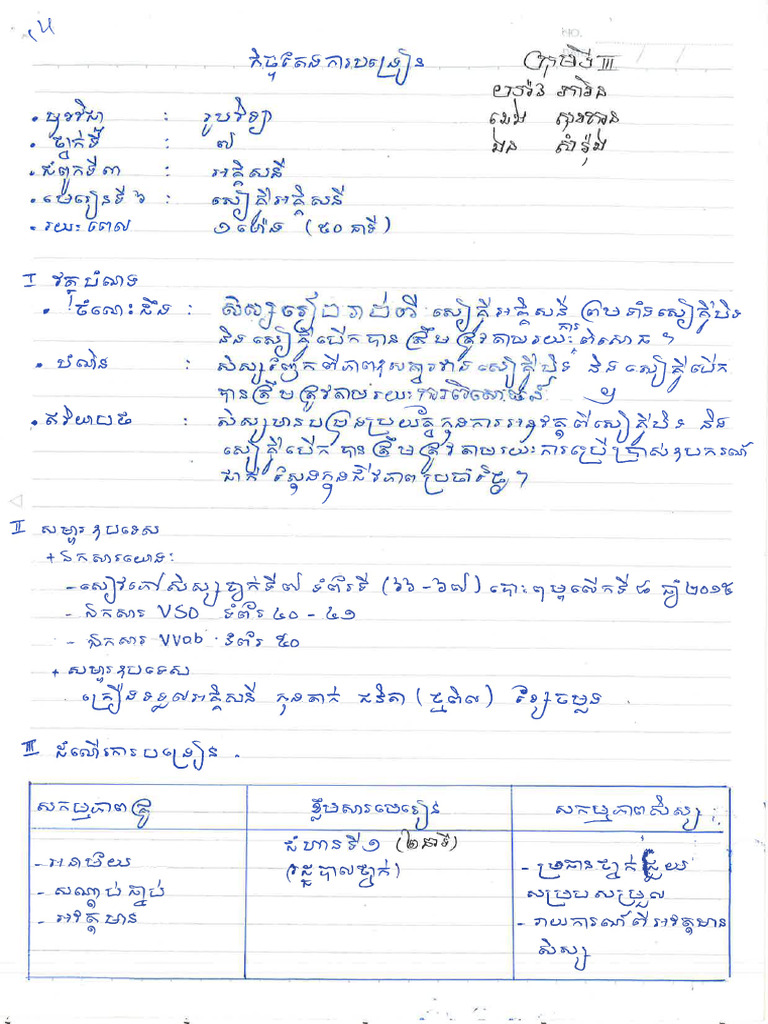 NO.
កិច្ចតែងការបង្រៀន
ក្រុមទី III
• មុខវិជ្ជា : រូបវិទ្យា
• ថ្នាក់ទី : ៧
• ជំពូកទី៣ : អគ្គិសនី
• មេរៀនទី ៦ : សៀគ្វីអគ្គិសនី
• រយៈពេល : ១ ម៉ោង (៥០ នាទី)
I វត្ថុបំណង
• ចំណេះដឹង : សិស្សរៀបរាប់ពី សៀគ្វីអគ្គិសនី ព្រមទាំងសៀគ្វីបិទ
និង សៀគ្វីបើក បានត្រឹមត្រូវតាមរយៈការពិសោធ ។
• បំណិន : សិស្សញែកពីភាពខុសគ្នារវាង សៀគ្វីបិទ និង សៀគ្វីបើក
បានត្រឹមត្រូវតាមរយៈការពិសោធន៍ ។
• ឥរិយាបថ : សិស្សមានបម្រុងប្រយ័ត្នក្នុងការអនុវត្តពីសៀគ្វីបិទ និង
សៀគ្វីបើក បានត្រឹមត្រូវតាមរយៈការប្រើប្រាស់ឧបករណ៍
ជាក់ស្តែងក្នុងជីវភាពប្រចាំថ្ងៃ ។
II សម្ភារឧបទេស
+ ឯកសារយោង:
- សៀវភៅសិស្សថ្នាក់ទី៧ ទំព័រទី (៦៦ - ៦៧) បោះពុម្ពលើកទី ៨ ឆ្នាំ ២០១៥
- ឯកសារ VSO ទំព័រ ៤០ - ៤១
- ឯកសារ VVOB ទំព័រ ៥០
+ សម្ភារឧបទេស
គ្រឿងទទួលអគ្គិសនី កុងតាក់ ជនិតា (ថ្មពិល) ខ្សែចម្លង
III ដំណើរការបង្រៀន .
សកម្មភាពគ្រូ
ខ្លឹមសារមេរៀន
សកម្មភាពសិស្ស
- អនាម័យ
- សណ្តាប់ធ្នាប់
- អវត្តមាន
ជំហានទី១ (២នាទី)
(រដ្ឋបាលថ្នាក់)
- ប្រធានថ្នាក់ជួយ
សម្របសម្រួល
- រាយការណ៍ពីអវត្តមាន
សិស្ស